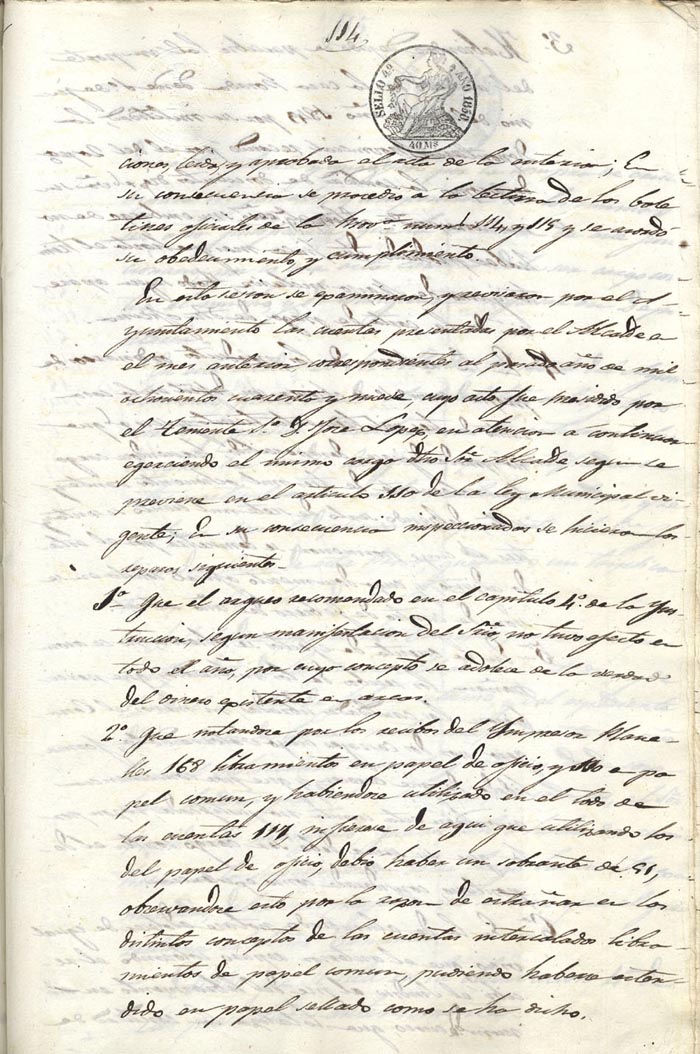 114
SELLO 4º AÑO 1850.
40 Ms
ciones, leida, y aprobada el acta de la anterior; En
su consecuencia se procedio a la lectura de los bole
tines oficiales de la Prov.ª num.s 114, y 115 y se acordó
su obedecimiento, y cumplimiento.
En esta sesion se examinaron, y revisaron por el A-
yuntamiento las cuentas presentadas por el Alcalde en
el mes anterior, correspondientes al pasado año de mil
ochocientos cuarenta y nueve cuyo acto fue presidido por
el Teniente 1.º D. Jose Lopez, en atencion a continuar
egerciendo el mismo cargo dho Sr. Alcalde segun se
previene en el articulo 110 de la ley Municipal vi-
gente; En su consecuencia inspeccionadas se hicieron los
reparos siguientes.
1º Que el arqueo recomendado en el capitulo 4.º de la Ins-
truccion, segun manifestacion del Srio, no tuvo efecto en
todo el año, por cuyo concepto se adolece de la verdad
del dinero existente en arcas.
2º Que notandose por los recibos del Impresor
168 libramientos en papel de oficio, y en pa
pel comun, y habiendose utilizado en el todo de
las cuentas 117, infierese de aqui que utilizando los
del papel de oficio, debio haber un sobrante de 51,
observandose esto por la razon de estrañar en los
distintos conceptos de las cuentas intercalados libra-
mientos de papel comun, pudiendo haberse esten-
dido en papel sellado como se ha dicho.